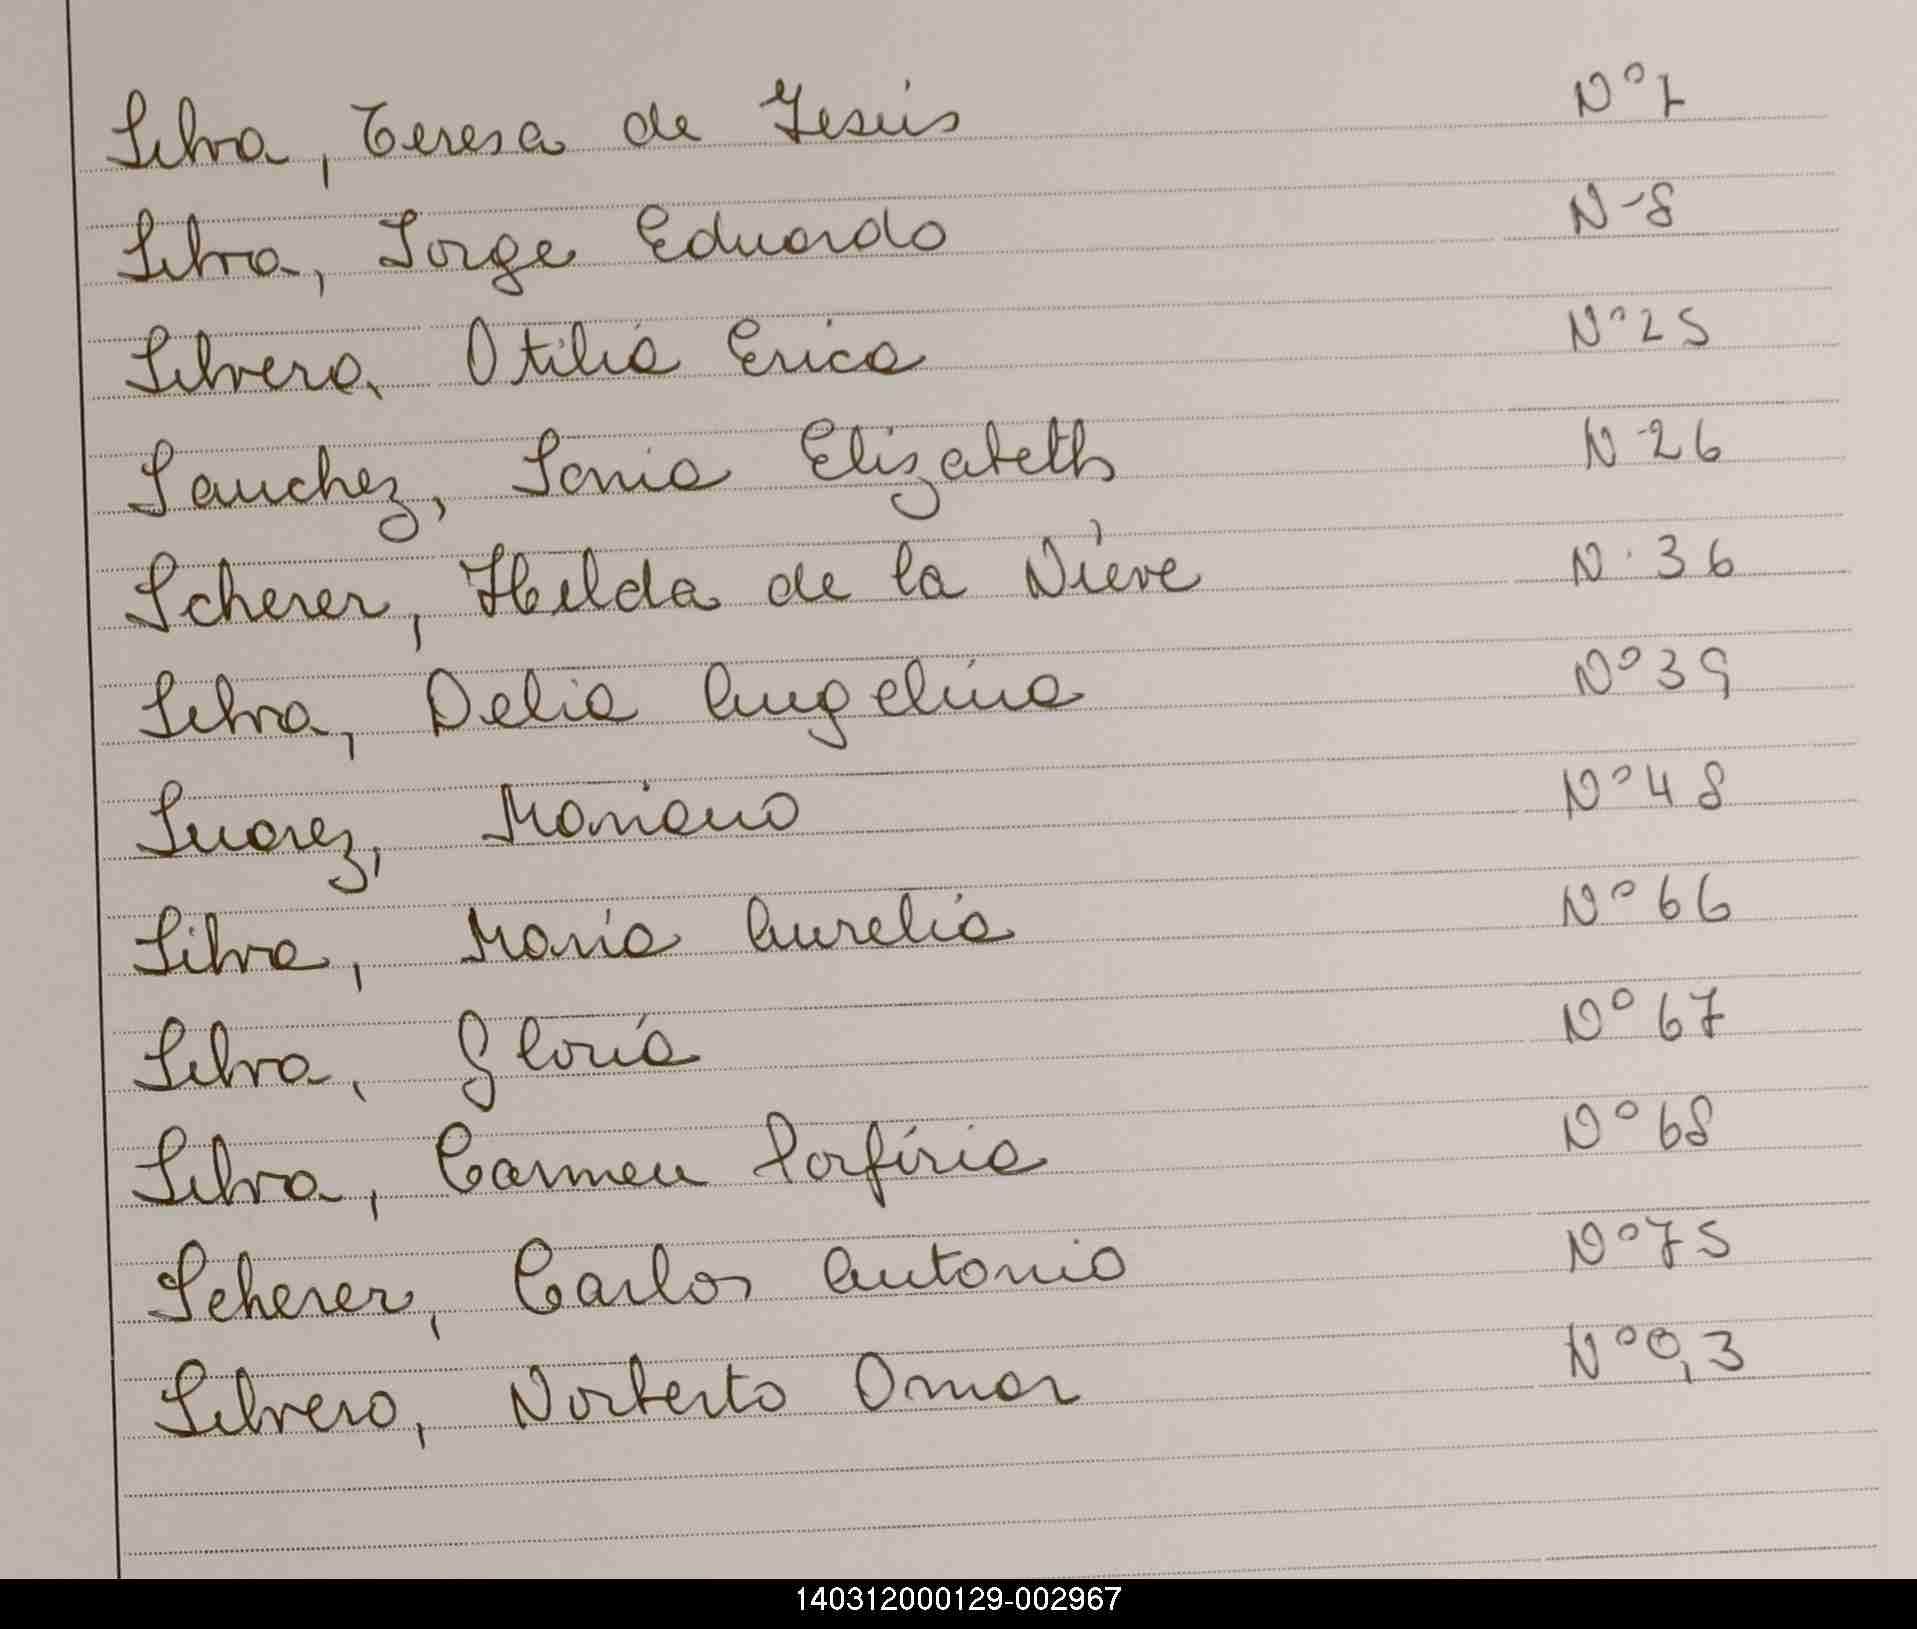 Silva, Teresa de Jesús N° 7
Silva, Jorge Eduardo N-8
Silvera, Otilia Erica N° 25
Sanchez, Sonia Elizabeth N 26
Scherer, Hilda de la Nieve N. 36
Silva, Delia Angelina N° 39
Suarez, Mariano N° 48
Silva, María Aurelia N° 66
Silva, Gloria N° 67
Silva, Carmen Porfiria N° 68
Scherer, Carlos Antonio N° 75
Silvero, Norberto Omar N°
140312000129-002967